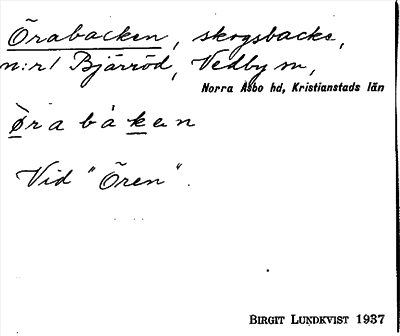 Örabacken, skogsbacke,
n:r 1 Bjärröd, Vedby sn,
Norra Åsbo hd, Kristianstads län
Öra båken
Vid "Ören".
BIRGIT LUNDKVIST 1937